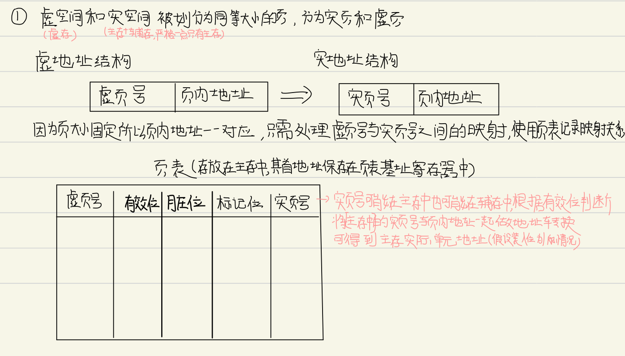 ① 虚空间和实空间 被划分为同等大小的页，分为实页和虚页
(虚存) (主存+辅存,开始一定只有主存)
虚地址结构 实地址结构
虚页号 页内地址 ⇒ 实页号 页内地址
因为页大小固定所以页内地址一一对应,只需处理虚页号与实页号之间的映射,使用页表记录映射关系
页表(存放在主存中,其首地址保存在页表基址寄存器中)
虚页号 有效位 脏位 标记位 实页号
→ 实页号 可能在主存中也可能在辅存中,根据有效位判断
将主存中的实页号与页内地址一起做地址转换
可得到主存实际单元地址(假设是 情况)